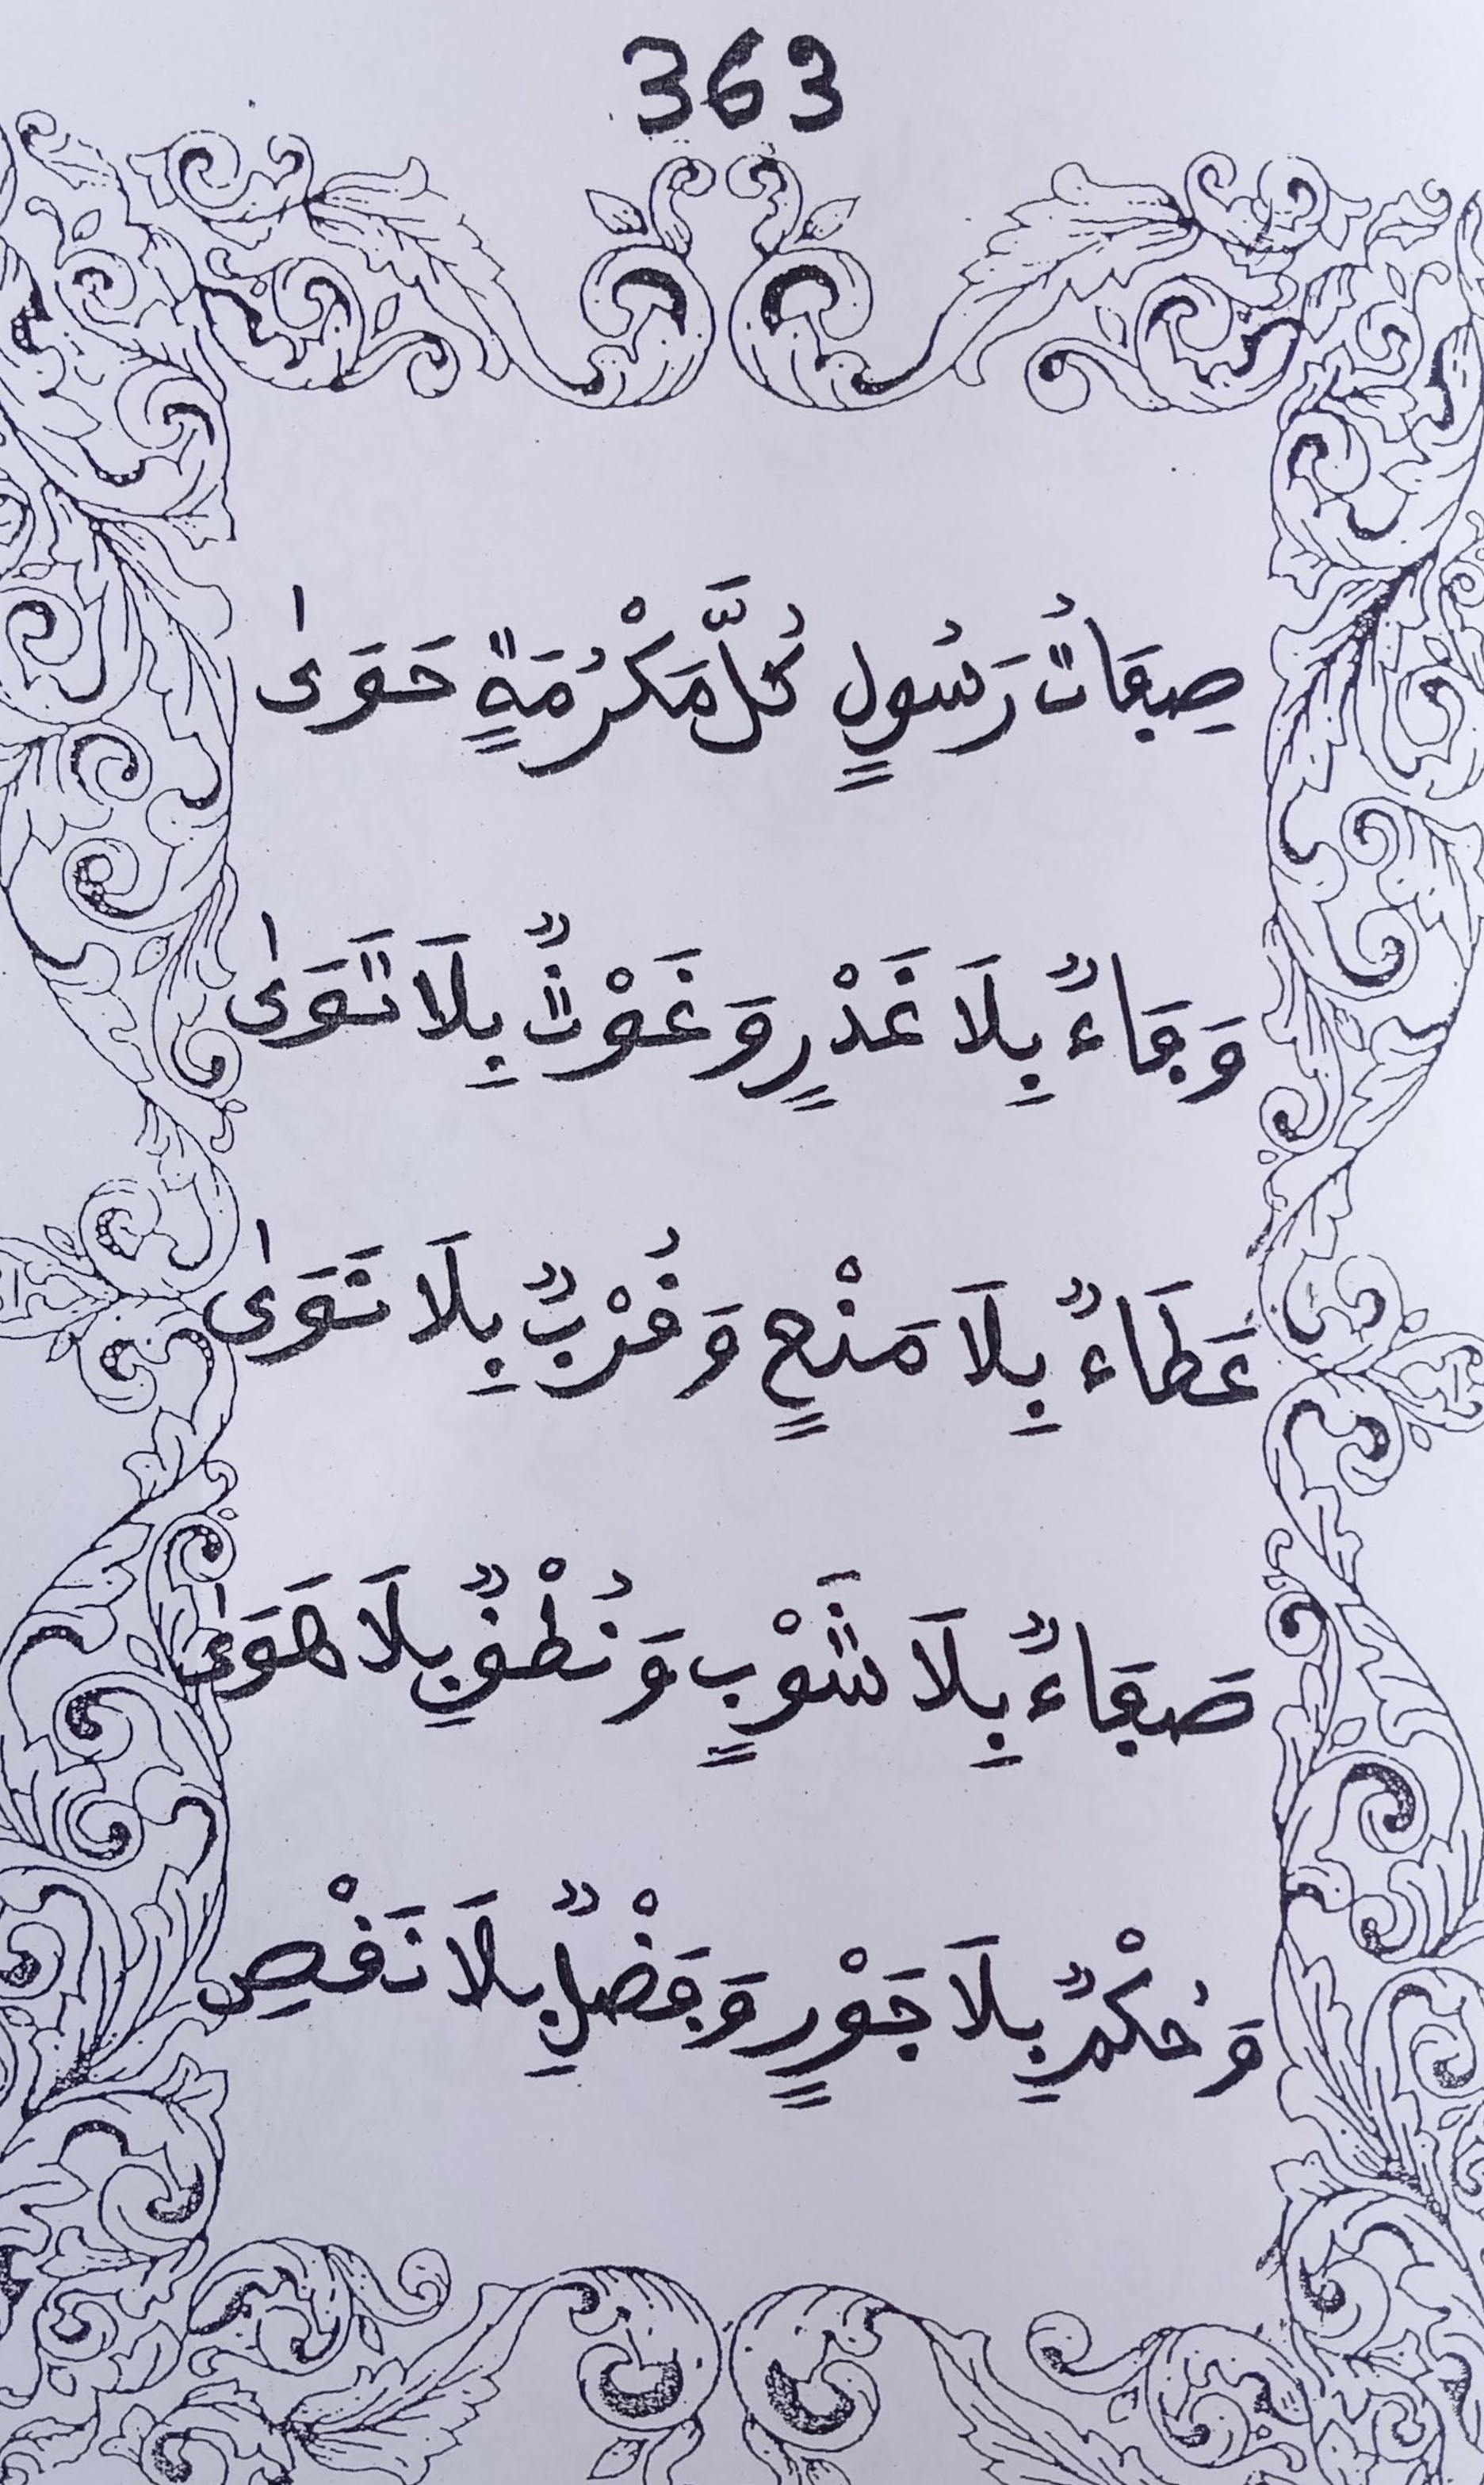 363
صِفَاتُ رَسُولٍ كُلَّ مَكْرُمَةٍ حَوَىٰ
وَفَاءٌ بِلَا غَدْرٍ وَغَوْثٌ بِلَا تَوَىٰ
عَطَاءٌ بِلَا مَنْعٍ وَقُرْبٌ بِلَا نَوَىٰ
صَفَاءٌ بِلَا شَوْبٍ وَنُطْقٌ بِلَا هَوَىٰ
وَحُكْمٌ بِلَا جَوْرٍ وَفَضْلٌ بِلَا نَقْصِ